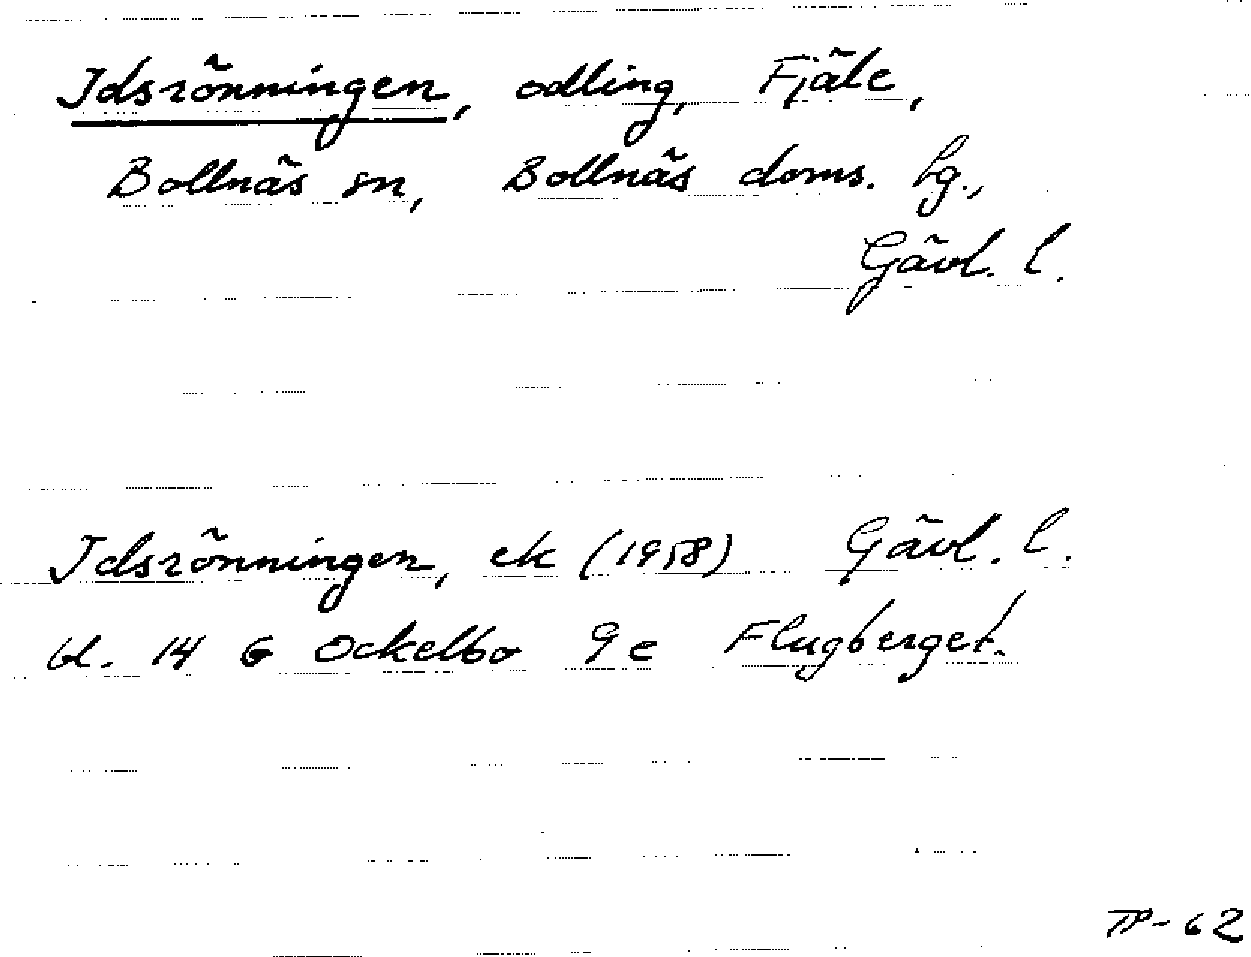 Idsrönningen, odling, Fjäle,
Bollnäs sn, Bollnäs doms. hg.,
Gävl. l.
Idsrönningen, ek (1958) Gävl. l.
bl. 14 G Ockelbo 9e Flugberget.
TP-62